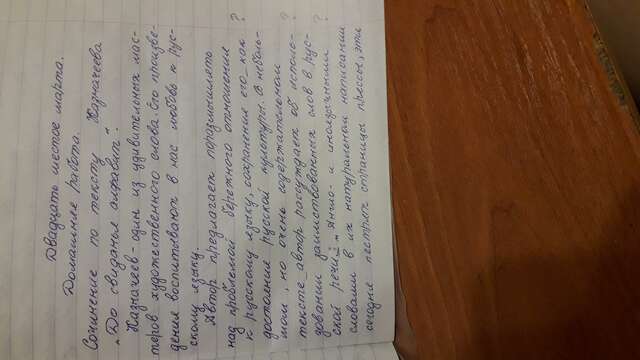 Двадцать шестое марта.
Домашнее работа.
Сочинение по тексту Казначеева
„До свиданья алфавит".
Казначеев - один из удивительных мас-
теров художественного слова. Его произве-
дения воспитывают в нас любовь к рус-
скому языку.
Автор предлагает поразмышлять
над проблемой бережного отношения ?
к русскому языку, сохранения его как
достояние русской культуры. В неболь-
шом, но очень содержательном ?
тексте автор рассуждает об исполь-
зовании заимствованных слов в рус- ?
ской речи: „Англо- и иноязычными
словами в их натуральном написании
сегодня пестрят страницы прессы, эти